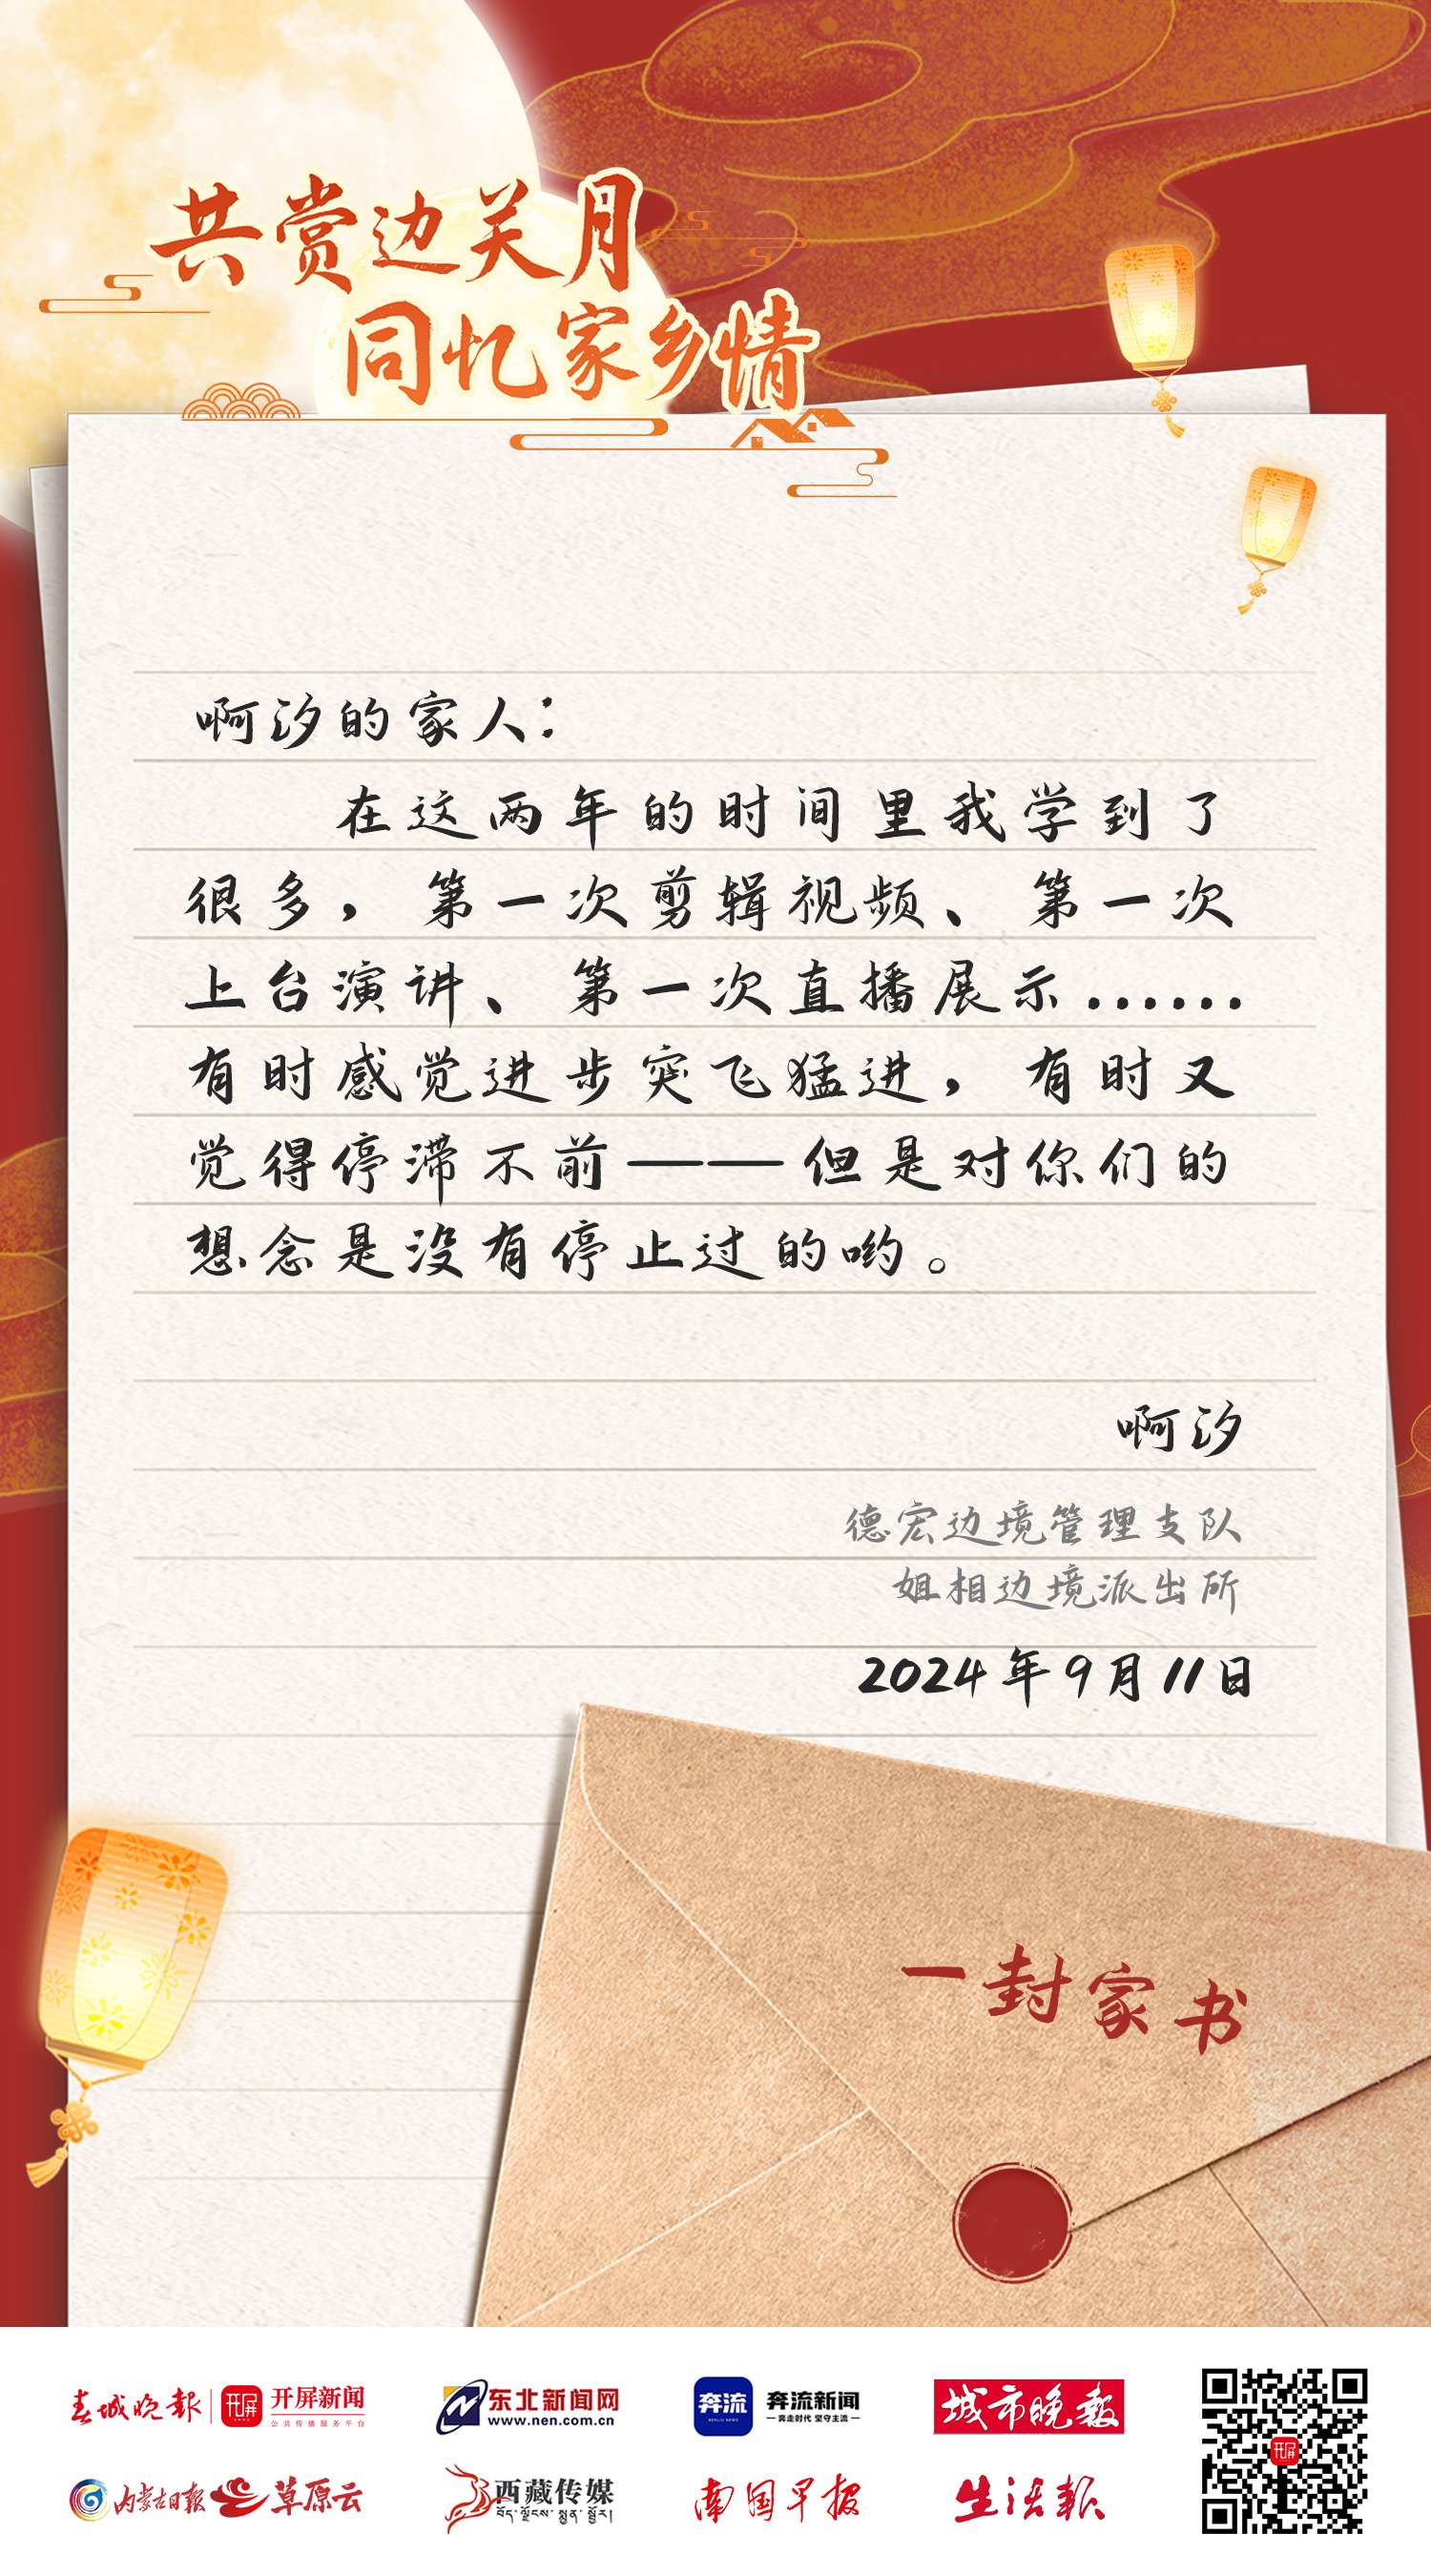 共赏边关月
同忆家乡情
啊汐的家人：
在这两年的时间里我学到了
很多，第一次剪辑视频、第一次
上台演讲、第一次直播展示......
有时感觉进步突飞猛进，有时又
觉得停滞不前——但是对你们的
想念是没有停止过的哟。
啊汐
德宏边境管理支队
姐相边境派出所
2024年9月11日
一封家书
春城晚报 开屏 开屏新闻
公共传播服务平台
东北新闻网
www.nen.com.cn
奔流 奔流新闻
奔走时代 坚守主流
城市晚报
内蒙古日报 草原云
西藏传媒
བོད་ལྗོངས་སྨྱན་སྦྱོར།
南国早报
生活报
开屏